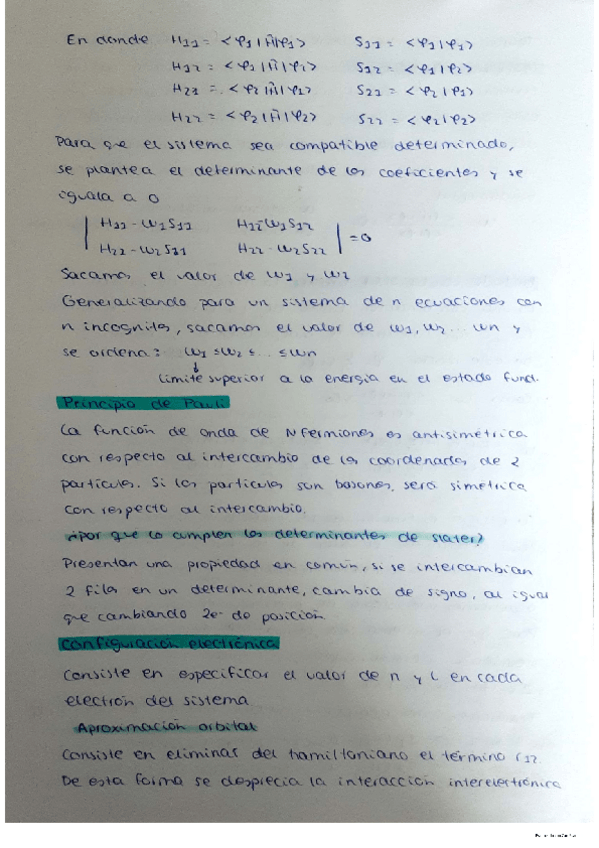 En donde H11 = <φ1|Ĥ|φ1> S11 = <φ1|φ1>
H12 = <φ1|Ĥ|φ2> S12 = <φ1|φ2>
H21 = <φ2|Ĥ|φ1> S21 = <φ2|φ1>
H22 = <φ2|Ĥ|φ2> S22 = <φ2|φ2>
Para que el sistema sea compatible determinado,
se plantea el determinante de los coeficientes y se
iguala a 0
| H11 - W1S11 H12-W1S12 |
| H21 - W2S11 H22 - W2S22 | = 0
Sacamos el valor de W1 y W2
Generalizando para un sistema de n ecuaciones con
n incognitas, sacamos el valor de W1, W2 ... Wn y
se ordena: W1 ≤ W2 ≤ ... ≤ Wn
↓
límite superior a la energia en el estado fund.
Principio de Pauli
La función de onda de N fermiones es antisimétrica
con respecto al intercambio de las coordenadas de 2
partículas. Si las partículas son bosones, será simétrica
con respecto al intercambio.
¿Por que lo cumplen los determinantes de slater?
Presentan una propiedad en común, si se intercambian
2 filas en un determinante, cambia de signo, al igual
que cambiando 2e- de posición
Configuración electrónica
Consiste en especificar el valor de n y l en cada
electrón del sistema
Aproximación orbital
Consiste en eliminar del hamiltoniano el término r12.
De esta forma se desprecia la interacción interelectrónica